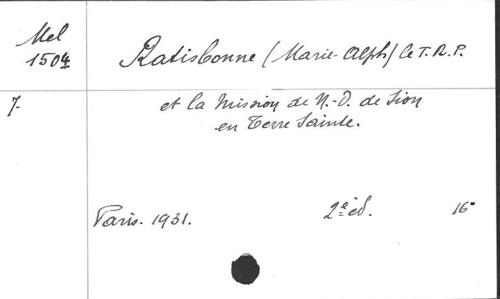 Mel
1504
Ratisbonne (Marie-Alph) le T.R.P.
7.
et la Mission de N.-D. de Sion
en Terre Sainte.
Paris. 1931.
2e éd.
16°